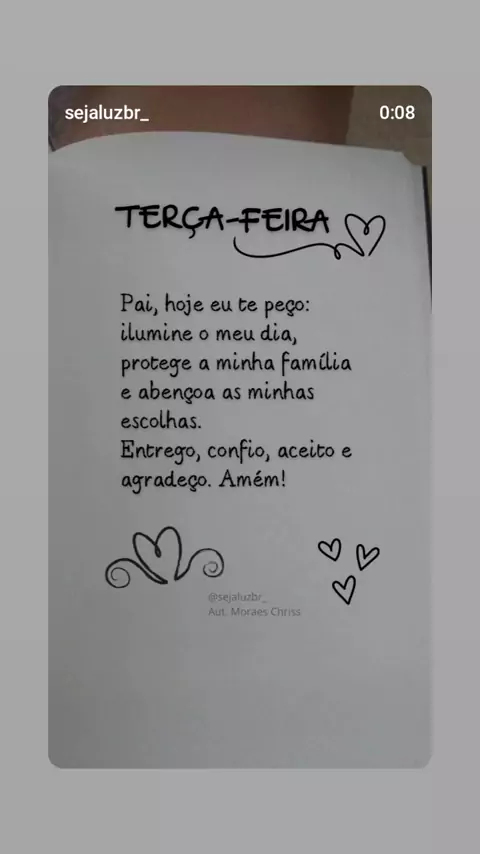 sejaluzbr_
0:08
TERÇA-FEIRA
Pai, hoje eu te peço:
ilumine o meu dia,
protege a minha família
e abençoa as minhas
escolhas.
Entrego, confio, aceito e
agradeço. Amém!
@sejaluzbr_
Aut. Moraes Chriss